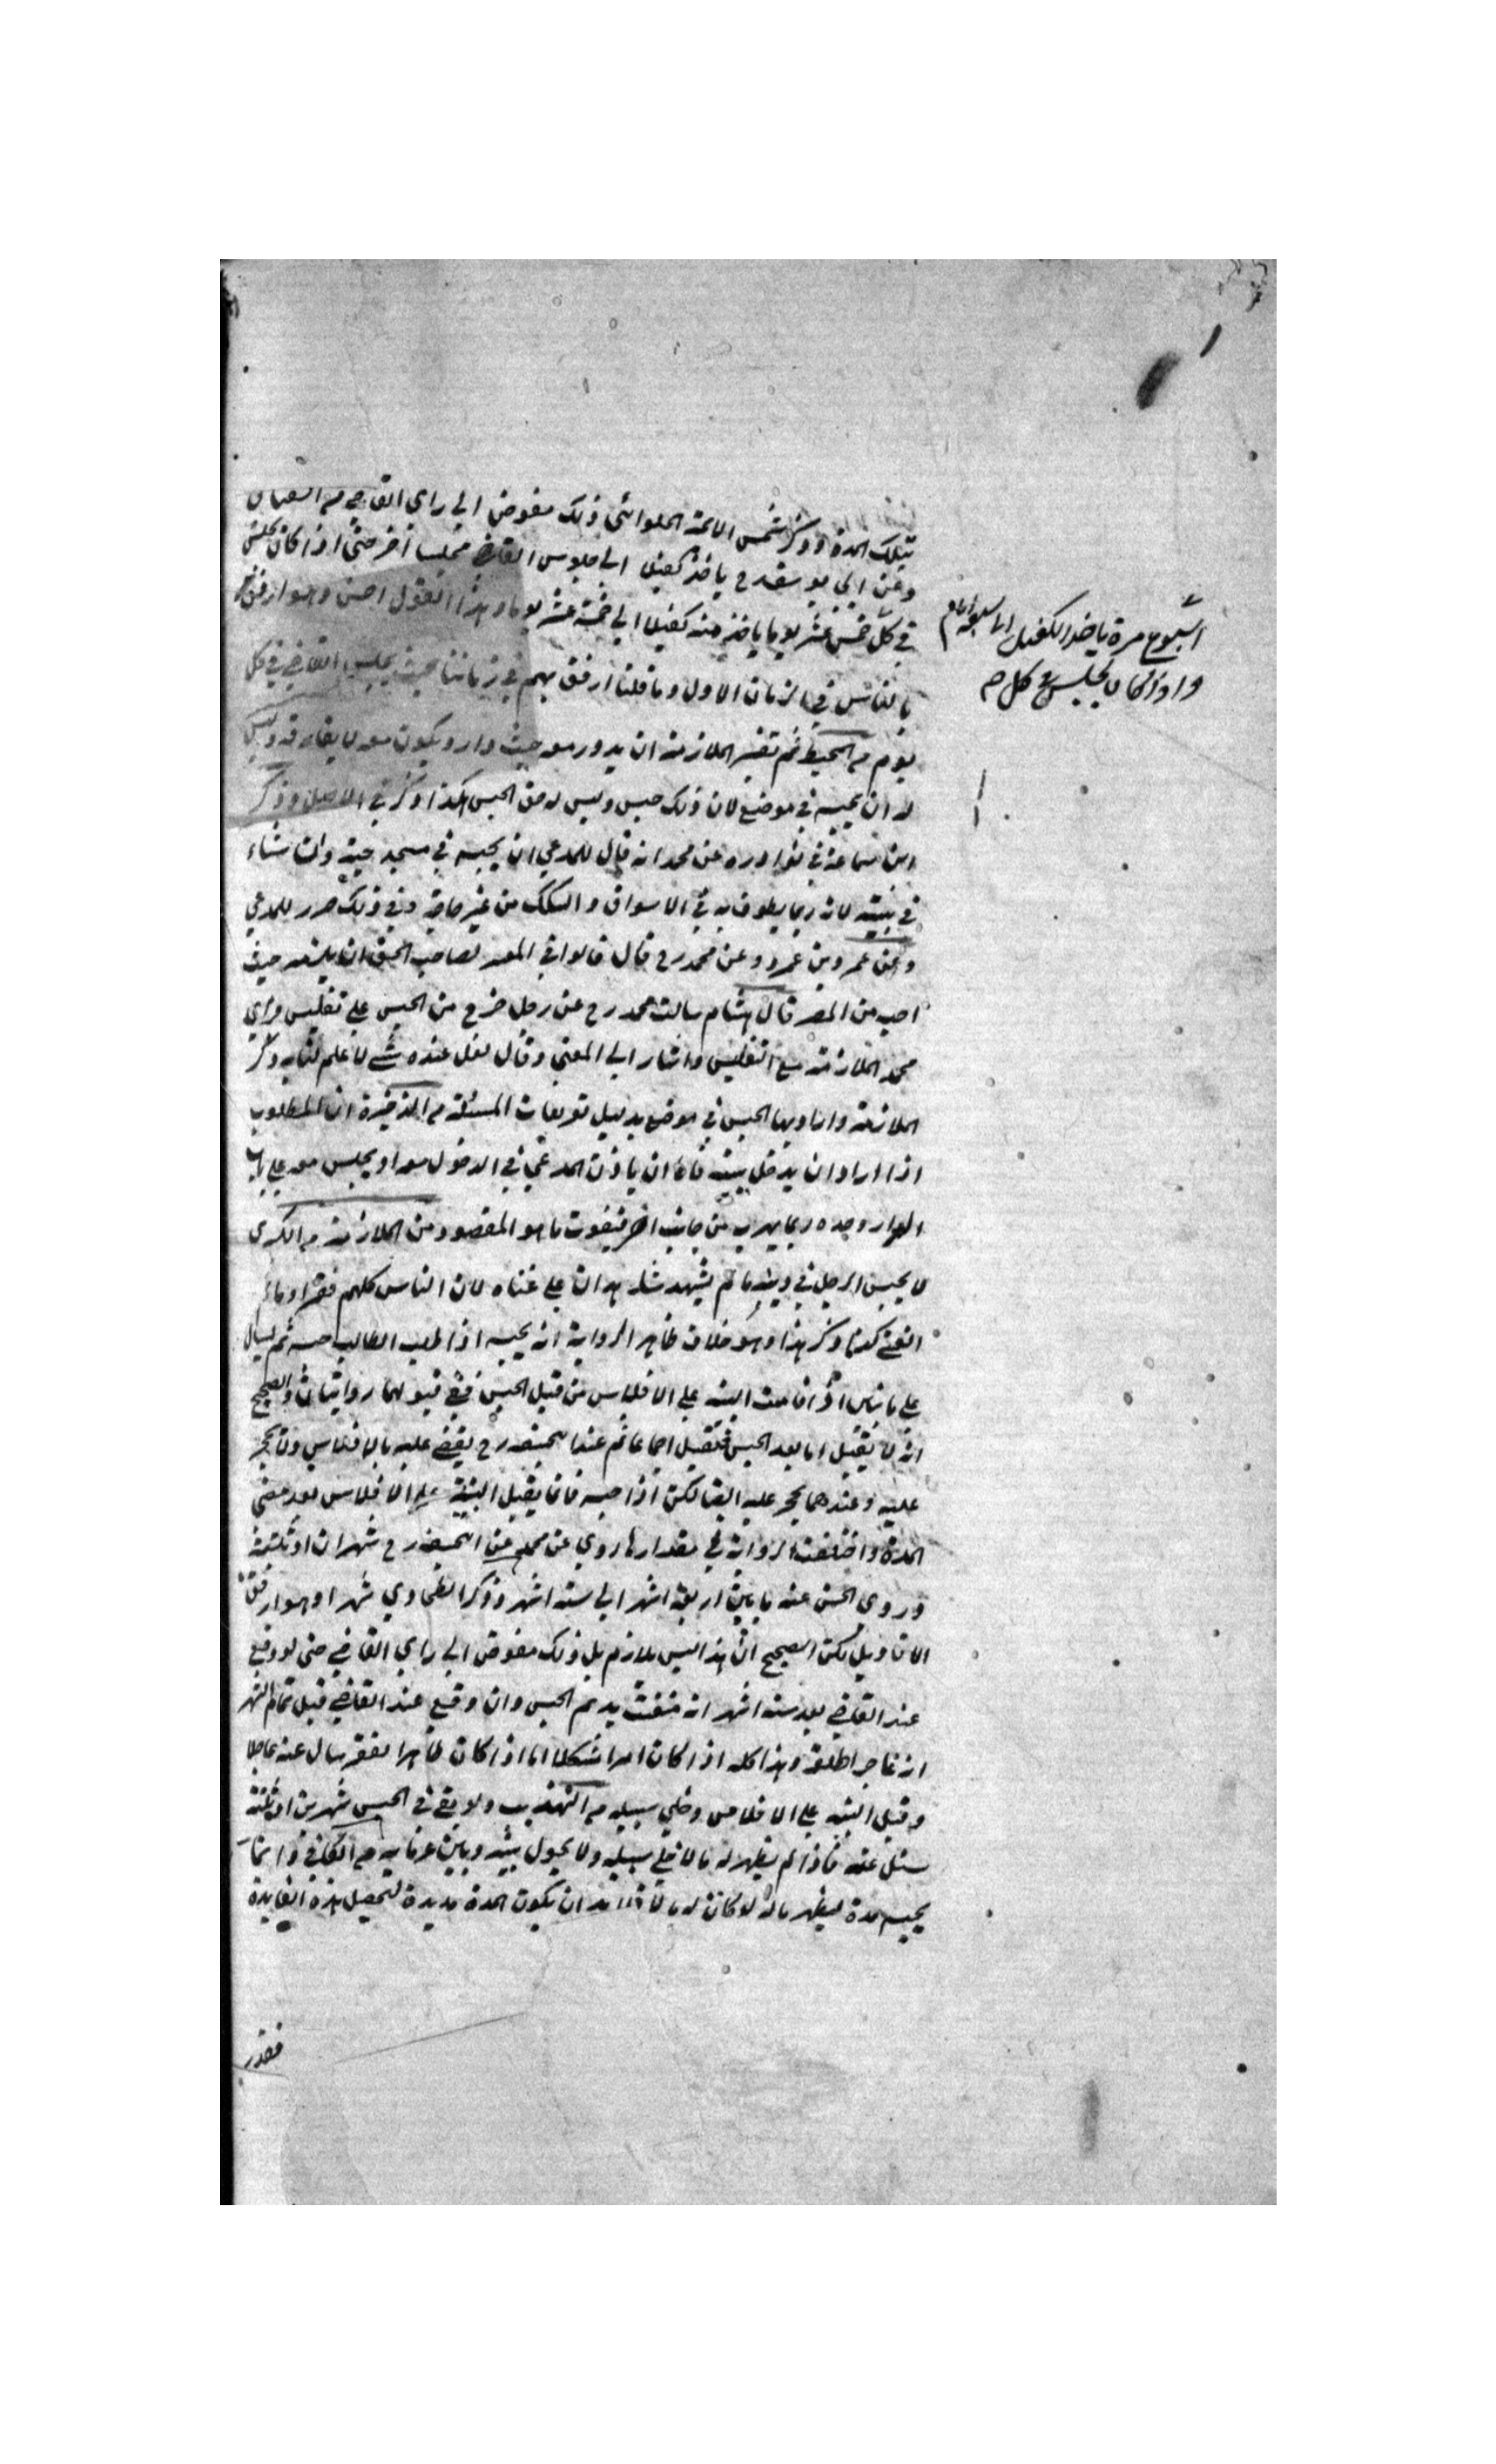 بتلك المدة وذكر شمس الائمة الحلوائي ذلك مفوض الى راي القاضي
وعن ابي يوسف رح ياخذ كفيلا الى جلوس القاضي مجلسا اخر حتى اذا كان يجلس
في كل خمس عشر يوما ياخذ منه كفيلا الى خمسة عشر يوما وهذا القول احسن وهو ارفق
بالناس في الزمان الاول وما قلنا ارفق بهم في زماننا حيث يجلس القاضي في كل
يوم م المحيط ثم تفسير الملازمة ان يدور معه حيث دار ويكون معه لا يفارقه وليس
له ان يحبسه في موضع لان ذلك حبس وليس له حق الحبس هكذا ذكر في الاصل وذكر
ابن سماعة في نوادره عن محمد انه قال للمدعي ان يحبسه في مسجد حيه وان شاء
في بيته لانه ربما يطوف به في الاسواق والسكك من غير حاجة وفي ذلك ضرر للمدعي
وعن عمرو بن عمرو وعن محمد رح قال قالوا في المعسر لصاحب الحق ان يلزمه حيث
احب من المصر قال هشام سالت محمد رح عن رجل خرج من الحبس على تفليس فراي
محمد الملازمة مع التفليس واشار الى المعنى وقال لعل عنده شي لا علم لنا به وذكر
الملازمة واراد بها الحبس في موضع بدليل تعريفات المسئلة م الذخيرة ان المطلوب
اذا اراد ان يدخل بيته فاما ان ياذن المدعي في الدخول معه او يجلس معه على باب
الدار وحده ربما يهرب من جانب اخر فيفوت ما هو المقصود من الملازمة م الكبرى
لا يحبس الرجل في دينه ما لم يشهد شاهدان على غناه لان الناس كلهم فقرا وما لم
هذا وهو خلاف ظاهر الرواية انه يحبسه اذا طلب الطالب حبسه ثم يسال
على ما اذا قامت البينة على الافلاس من قبل الحبس ففي قبولها روايتان والصحيح
انه لا يقبل اما بعد الحبس فتقبل اجماعا ثم عند ابيحنيفه رح يقضي عليه بالافلاس ولا يحجر
عليه وعندهما يحجر عليه ايضا لكن اذا حبسه فانما يقبل البينة على الافلاس بعد مضي
المدة واختلفت الرواية في مقدارها روي عن محمد عن ابيحنيفه رح شهران او ثلثة
وروى الحسن عنه ما بين اربعة اشهر الى ستة اشهر وذكر الطحاوي شهرا وهو ارفق
الاقاويل لكن الصحيح ان هذا ليس بلازم بل ذلك مفوض الى راي القاضي حتى لو وقع
عند القاضي بعد ستة اشهر انه متعنت يديم الحبس وان وقع عند القاضي قبل تمام الشهر
انه عاجز اطلقه وهذا كله اذا كان امرا مشكلا اما اذا كان ظاهر الفقر سال عنه عاجلا
وقبل البينة على الافلاس وخلي سبيله م التهذيب ولو بقي في الحبس شهرين او ثلثة
سئل عنه فاذا لم يظهر له مال خلي سبيله ولا يحول بينه وبين غرمايه م الكافي وانما
يحبسه مدة ليظهر ماله لو كان له مال فلا بد ان يكون المدة مديدة لتحصيل هذه الفايدة
فقدر
اسبوع مرة ياخذ الكفيل الى سبعة ايام
واذا كان يجلس في كل م